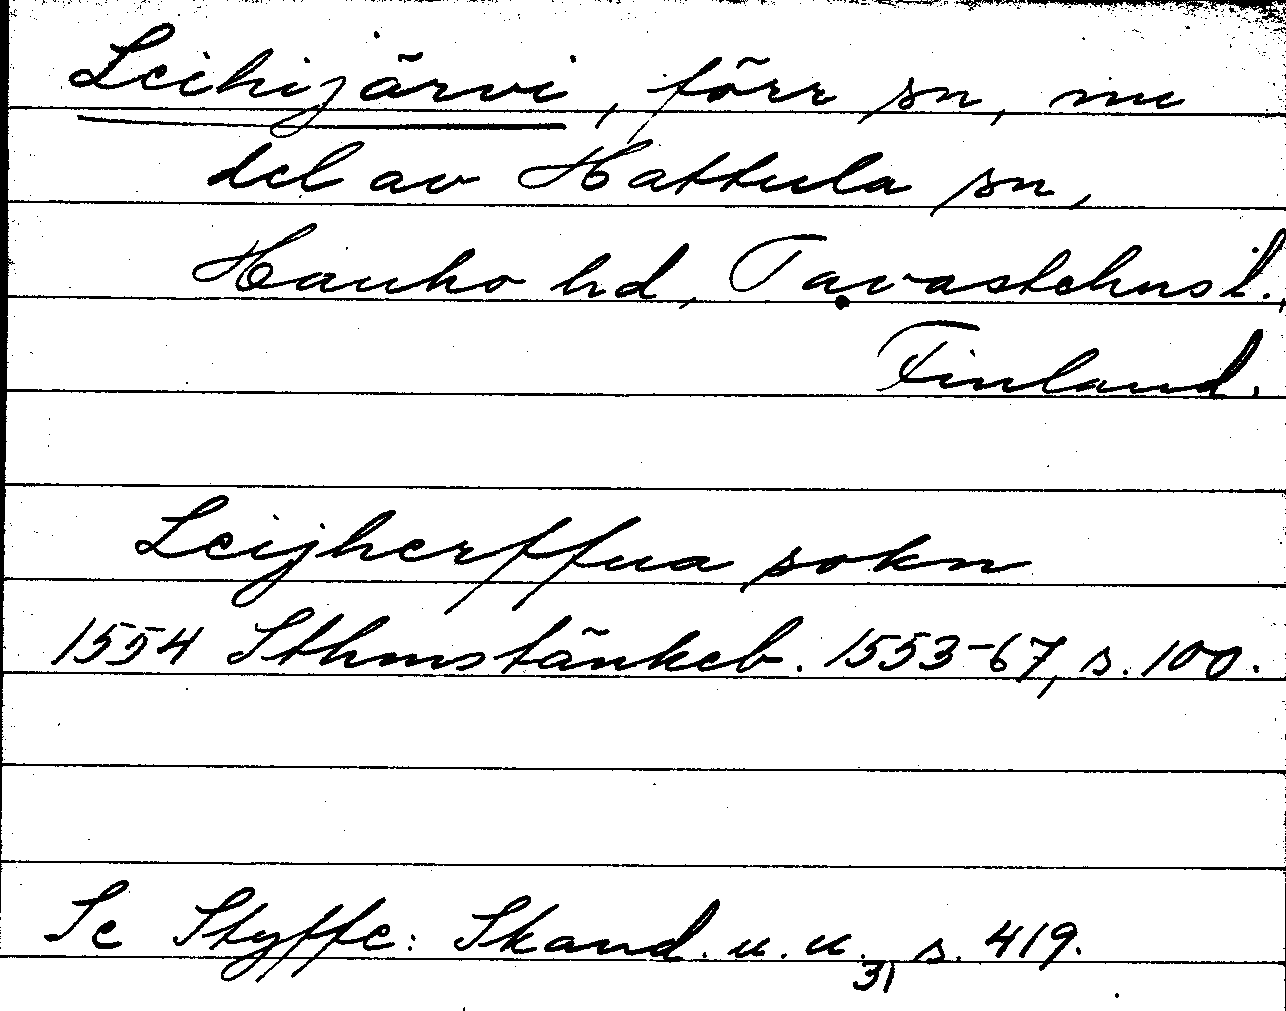 Leihijärvi, förr sn, nu
del av Hattula sn,
Hauho hd, Tavastehusl.,
Finland.
Leijherffua sokn
1554 Sthmstänkeb. 1553-67, s. 100.
Se Styffe: Skand. u. u.3) s. 419.